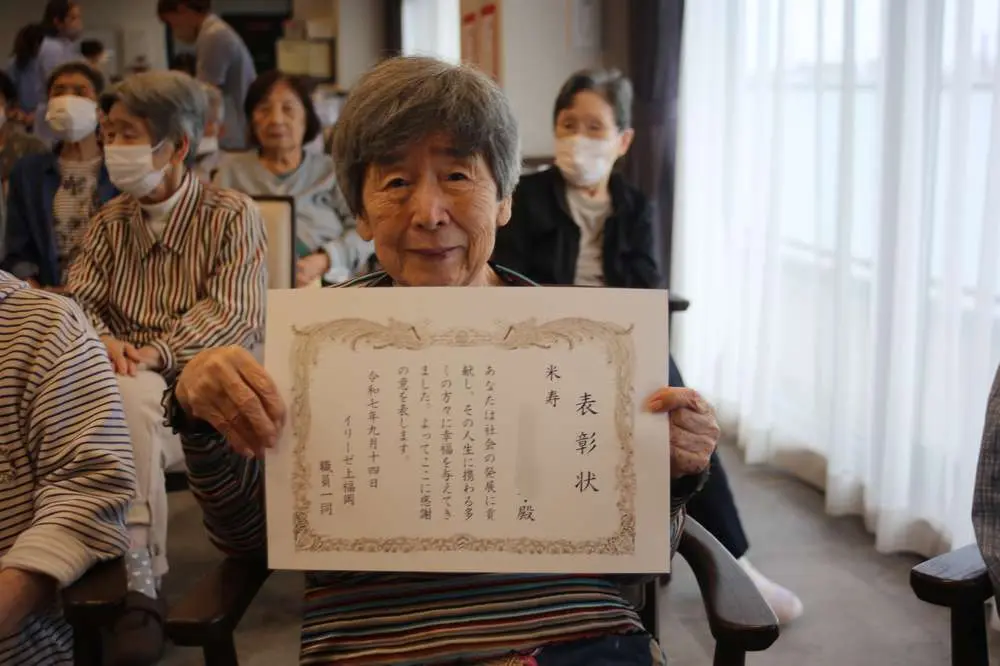 表彰状
米寿
殿
あなたは社会の発展に貢
献し、その人生に携わる多
くの方々に幸福を与えてき
ました。よってここに感謝
の意を表します。
令和七年九月十四日
イリーゼ上福岡
職員一同